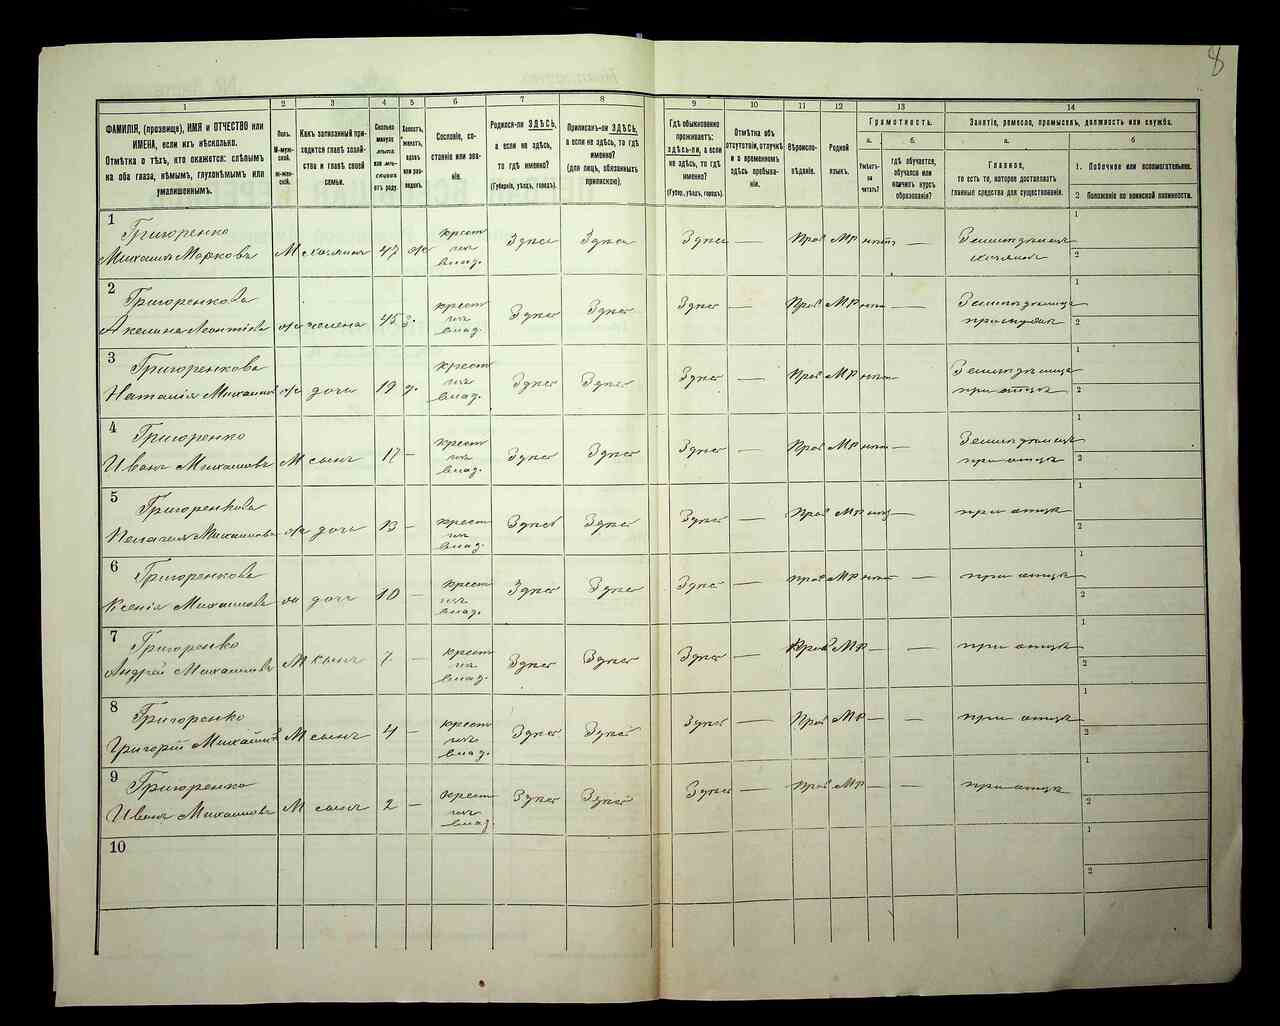 8
1
2
3
4
5
6
7
8
9
10
11
12
13
14
ФАМИЛІЯ, (прозвище), ИМЯ и ОТЧЕСТВО или
ИМЕНА, если ихъ нѣсколько.
Отмѣтка о тѣхъ, кто окажется: слѣпымъ
на оба глаза, нѣмымъ, глухонѣмымъ или
умалишеннымъ.
Полъ.
М-мужской.
Ж-женской.
Какъ записанный приходится
главѣ хозяйства
и главѣ своей
семьи.
Сколько
минуло
лѣтъ
или мѣсяцевъ
отъ роду.
Холостъ,
женатъ,
вдовъ
или разведенъ.
Сословіе, состояніе
или званіе.
Родился-ли ЗДѢСЬ,
а если не здѣсь,
то гдѣ именно?
(Губернія, уѣздъ, городъ).
Приписанъ-ли ЗДѢСЬ,
а если не здѣсь, то гдѣ
именно?
(для лицъ, обязанныхъ
припискою).
Гдѣ обыкновенно
проживаетъ:
здѣсь-ли, а если
не здѣсь, то гдѣ
именно?
(Губер., уѣздъ, городъ).
Отмѣтка объ
отсутствіи, отлучкѣ
и о временномъ
здѣсь пребываніи.
Вѣроисповѣданіе.
Родной
языкъ.
Грамотность.
а.
б.
Умѣетъ-ли
читать?
гдѣ обучается,
обучался или
кончилъ курсъ
образованія?
Занятіе, ремесло, промыселъ, должность или служба.
а.
б
Главное,
то есть то, которое доставляетъ
главныя средства для существованія.
1. Побочное или вспомогательное.
2 Положеніе по воинской повинности.
1
Григоренко
Михаилъ Марковъ М хозяинъ 47 ж крест из влад. Здѣсь Здѣсь Здѣсь — Прав МР нѣтъ — Земледѣлецъ хозяинъ 1 2
2
Григоренкова
Акелина Леонтіева ж жена 45 з. крест из влад. Здѣсь Здѣсь Здѣсь — Прав МР нѣт — Земледѣлица при мужѣ 1 2
3
Григоренкова
Наталія Михаил ж дочь 19 д. крест из влад. Здѣсь Здѣсь Здѣсь — Прав МР нѣт Земледѣлица при отцѣ 1 2
4
Григоренко
Иванъ Михаиловъ М сынъ 17 — крест из влад. Здѣсь Здѣсь Здѣсь — Прав МР нѣт — Земледѣлецъ при отцѣ 1 2
5
Григоренкова
Пелагея Михаилова ж дочь 13 — крест из влад. Здѣсь Здѣсь Здѣсь — Прав МР нѣт — при отцѣ 1 2
6
Григоренкова
Ксенія Михаилова ж дочь 10 — крест из влад. Здѣсь Здѣсь Здѣсь — Прав МР нѣт — при отцѣ 1 2
7
Григоренко
Андрей Михаиловъ М сынъ 7 — крест из влад. Здѣсь Здѣсь Здѣсь — Прав МР — — при отцѣ 1 2
8
Григоренко
Григорій Михаилов М сынъ 4 — крест из влад. Здѣсь Здѣсь Здѣсь — Прав МР — — при отцѣ 1 2
9
Григоренко
Иванъ Михаиловъ М сынъ 2 — крест из влад. Здѣсь Здѣсь Здѣсь — Прав МР — — при отцѣ 1 2
10
1
2